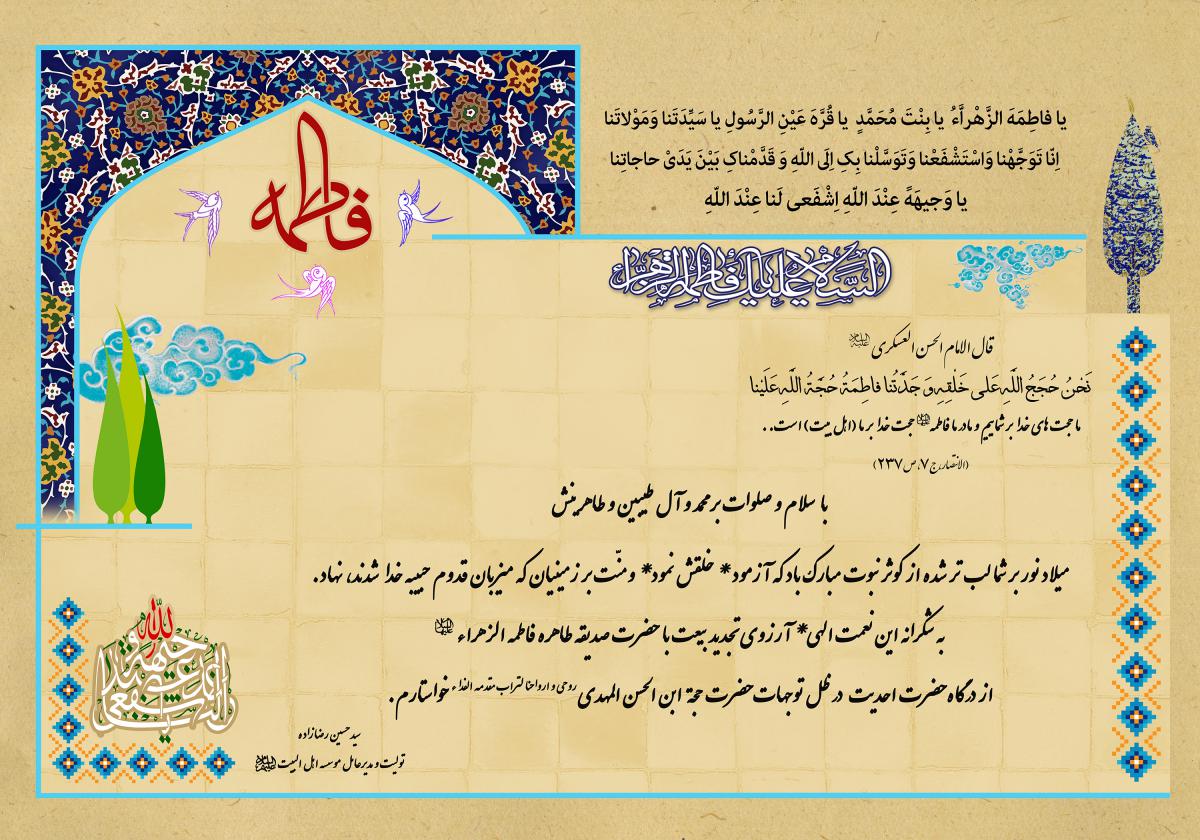 یا فاطِمَهَ الزَّهْراَّءُ یا بِنْتَ مُحَمَّدٍ یا قُرَّهَ عَیْنِ الرَّسُولِ یا سَیِّدَتَنا وَمَوْلاتَنا
اِنّا تَوَجَّهْنا وَاسْتَشْفَعْنا وَتَوَسَّلْنا بِکِ اِلَی اللّهِ وَ قَدَّمْناکِ بَیْنَ یَدَیْ حاجاتِنا
یا وَجیهَهً عِنْدَ اللّهِ اِشْفَعی لَنا عِنْدَ اللّهِ
فاطمه
السلام علیک یا فاطمه الزهراء
قال الامام الحسن العسکری علیه السلام
نَحْنُ حُجَجُ اللَّهِ عَلی خَلْقِهِ وَ جَدَّتُنا فاطِمَةُ حُجَّةُ اللَّهِ عَلَیْنا
ما حجت های خدا بر شماییم و مادر ما فاطمه حجت خدا بر ما (اهل بیت) است. .
ج ۷، ص ۲۳۷)
با سلام و صلوات بر محمد و آل طیبین و طاهرینش
میلاد نور بر شما لب تر شده از کوثر نبوت مبارک باد که آزمود* خلقش نمود* و منّت بر زمینیان که میزبان قدوم حبیبه خدا شدند، نهاد.
به شکرانه این نعمت الهی* آرزوی تجدید بیعت با حضرت صدیقه طاهره فاطمه الزهراء
از درگاه حضرت احدیت در ظل توجهات حضرت حجة ابن الحسن المهدی روحی و ارواحنا لتراب مقدمه الفداء. خواستارم.
سید حسین رضازاده
تولیت و مدیرعامل موسسه اهل البیت